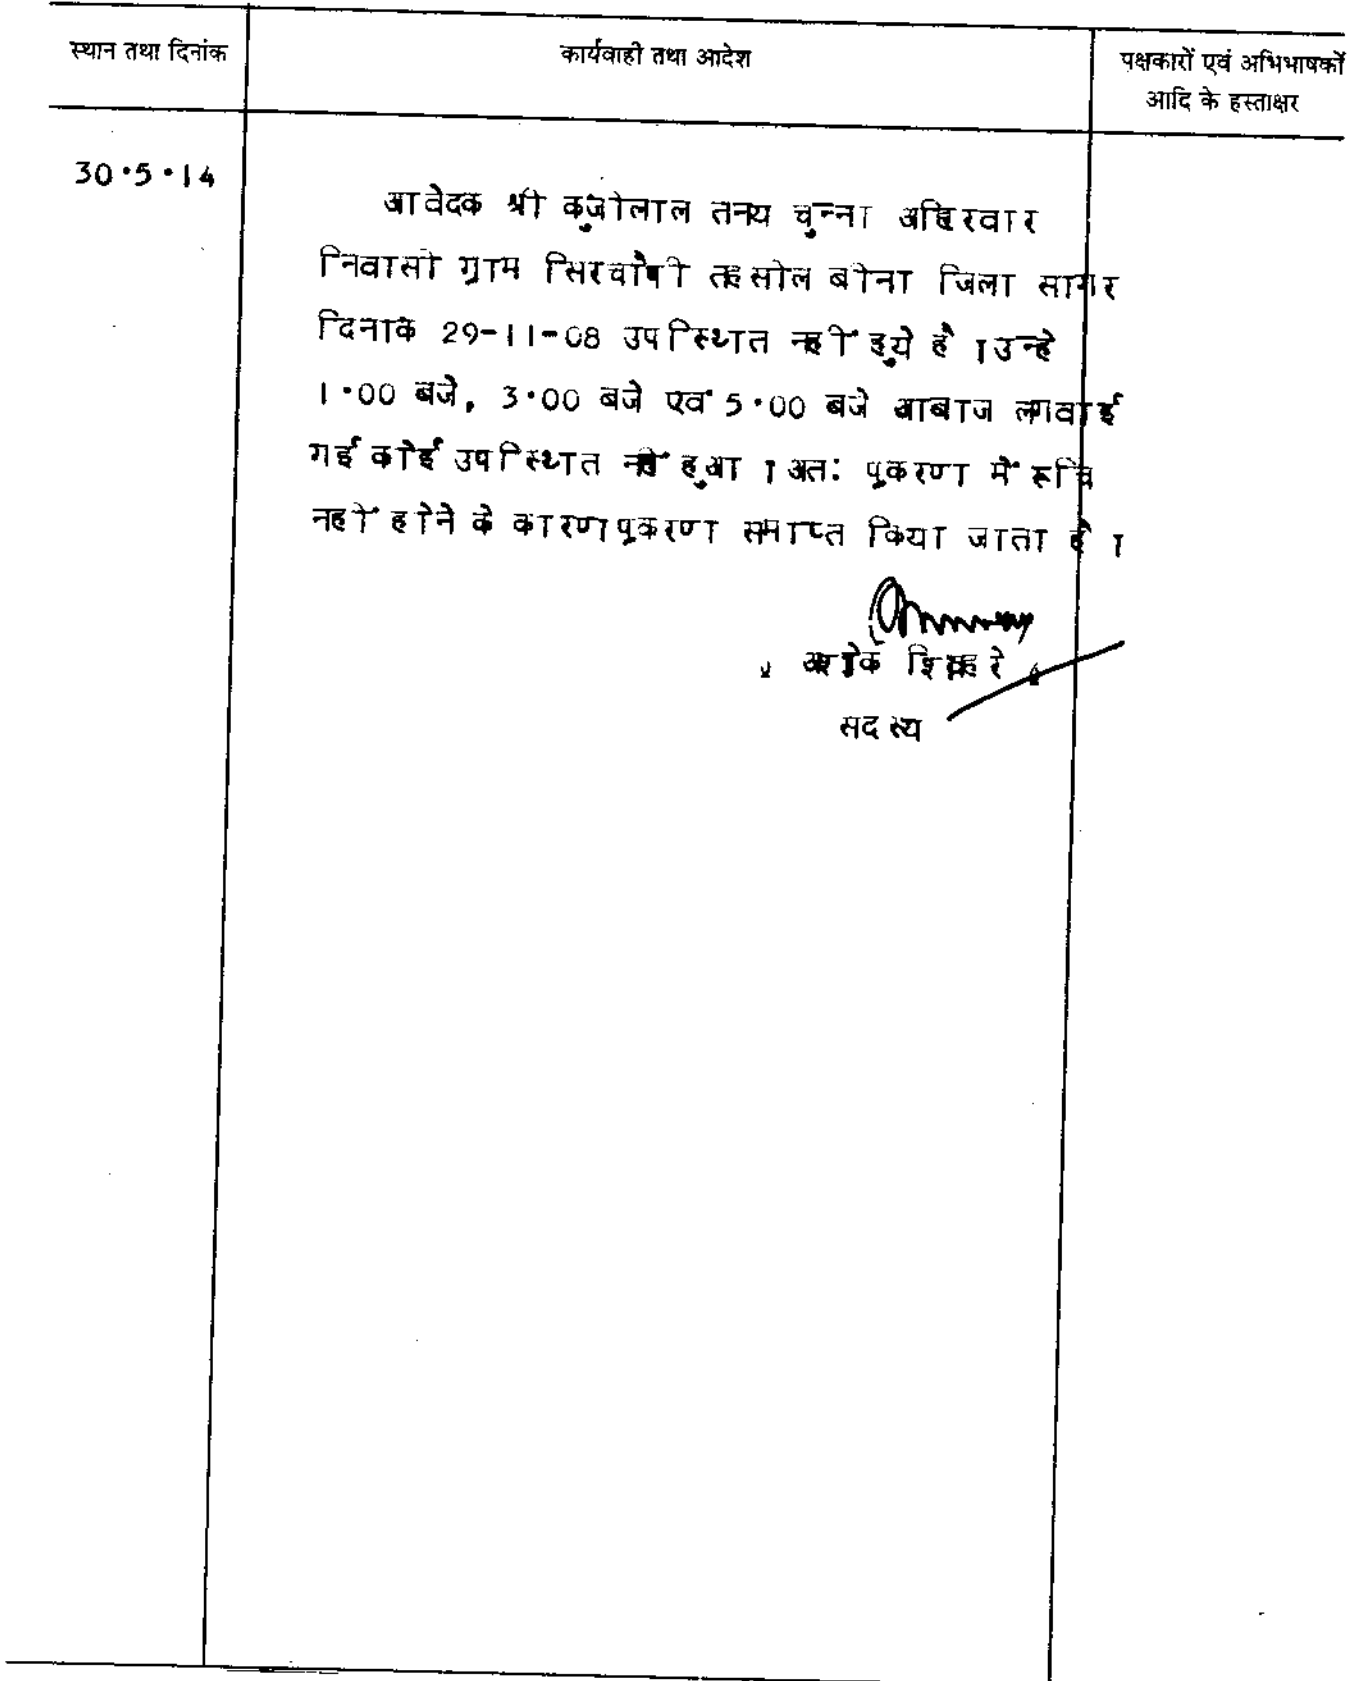 स्थान तथा दिनांक
कार्यवाही तथा आदेश
पक्षकारों एवं अभिभाषकों
आदि के हस्ताक्षर
30.5.14
आवेदक श्री कुंजोलाल तनय चुन्ना अहिरवार
निवासी ग्राम तहसील बीना जिला सागर
दिनांक 29-11-08 उपस्थित नहीं हुये है ।उन्हे
1.00 बजे, 3.00 बजे एवं 5.00 बजे आबाज लगवाई
गई कोई उपस्थित नहीं हुआ ।अतः प्रकरण में रूचि
नहीं होने के कारण प्रकरण समाप्त किया जाता है ।
अशोक शिवहरे
सदस्य